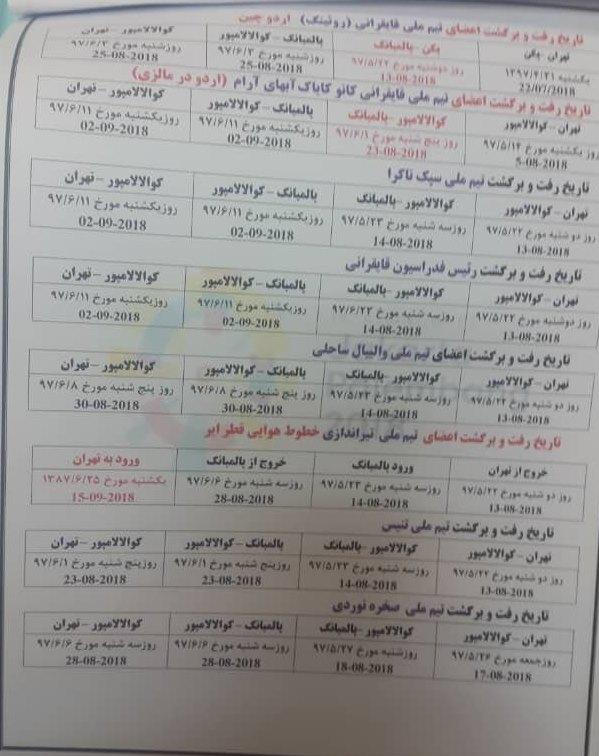 تاریخ رفت و برگشت اعضای تیم ملی قایقرانی (روئینگ) اردو چین
تهران - پکن پکن - پالمبانگ پالمبانگ - کوالالامپور کوالالامپور - تهران
یکشنبه ۱۳۹۷/۴/۳۱ روز دوشنبه مورخ ۹۷/۵/۲۲ روزشنبه مورخ ۹۷/۶/۳ روزشنبه مورخ ۹۷/۶/۳
22/07/2018 13-08-2018 25-08-2018 25-08-2018
تاریخ رفت و برگشت اعضای تیم ملی قایقرانی کانو کایاک آبهای آرام (اردو در مالزی)
تهران - کوالالامپور کوالالامپور - پالمبانگ پالمبانگ - کوالالامپور کوالالامپور - تهران
روز یکشنبه مورخ ۹۷/۵/۱۴ روز پنج شنبه مورخ ۹۷/۶/۱ روزیکشنبه مورخ ۹۷/۶/۱۱ روزیکشنبه مورخ ۹۷/۶/۱۱
5-08-2018 23-08-2018 02-09-2018 02-09-2018
تاریخ رفت و برگشت تیم ملی سپک تاکرا
تهران - کوالالامپور کوالالامپور - پالمبانگ پالمبانگ - کوالالامپور کوالالامپور - تهران
روز دو شنبه مورخ ۹۷/۵/۲۲ روزسه شنبه مورخ ۹۷/۵/۲۳ روزیکشنبه مورخ ۹۷/۶/۱۱ روزیکشنبه مورخ ۹۷/۶/۱۱
13-08-2018 14-08-2018 02-09-2018 02-09-2018
تاریخ رفت و برگشت رئیس فدراسیون قایقرانی
تهران - کوالالامپور کوالالامپور - پالمبانگ پالمبانگ - کوالالامپور کوالالامپور - تهران
روز دوشنبه مورخ ۹۷/۵/۲۲ روزسه شنبه مورخ ۹۷/۶/۲۳ روزیکشنبه مورخ ۹۷/۶/۱۱ روزیکشنبه مورخ ۹۷/۶/۱۱
13-08-2018 14-08-2018 02-09-2018 02-09-2018
تاریخ رفت و برگشت اعضای تیم ملی والیبال ساحلی
تهران - کوالالامپور کوالالامپور - پالمبانگ پالمبانگ - کوالالامپور کوالالامپور - تهران
روز دو شنبه مورخ ۹۷/۵/۲۲ روزسه شنبه مورخ ۹۷/۵/۲۳ روز پنج شنبه مورخ ۹۷/۶/۸ روز پنج شنبه مورخ ۹۷/۶/۸
13-08-2018 14-08-2018 30-08-2018 30-08-2018
تاریخ رفت و برگشت اعضای تیم ملی تیراندازی خطوط هوایی قطر ایر
خروج از تهران ورود پالمبانگ خروج از پالمبانگ ورود به تهران
روز دو شنبه مورخ ۹۷/۵/۲۲ روزسه شنبه مورخ ۹۷/۵/۲۳ روزسه شنبه مورخ ۹۷/۶/۶ یکشنبه مورخ ۱۳۸۷/۶/۲۵
13-08-2018 14-08-2018 28-08-2018 15-09-2018
تاریخ رفت و برگشت تیم ملی تنیس
تهران - کوالالامپور کوالالامپور - پالمبانگ پالمبانگ - کوالالامپور کوالالامپور - تهران
روز دو شنبه مورخ ۹۷/۵/۲۲ روزسه شنبه مورخ ۹۷/۵/۲۳ روزپنج شنبه مورخ ۹۷/۶/۱ روزپنج شنبه مورخ ۹۷/۶/۱
13-08-2018 14-08-2018 23-08-2018 23-08-2018
تاریخ رفت و برگشت تیم ملی صخره نوردی
تهران - کوالالامپور کوالالامپور - پالمبانگ پالمبانگ - کوالالامپور کوالالامپور - تهران
روزجمعه مورخ ۹۷/۵/۲۶ روزشنبه مورخ ۹۷/۵/۲۷ روزسه شنبه مورخ ۹۷/۶/۶ روزسه شنبه مورخ ۹۷/۶/۶
17-08-2018 18-08-2018 28-08-2018 28-08-2018